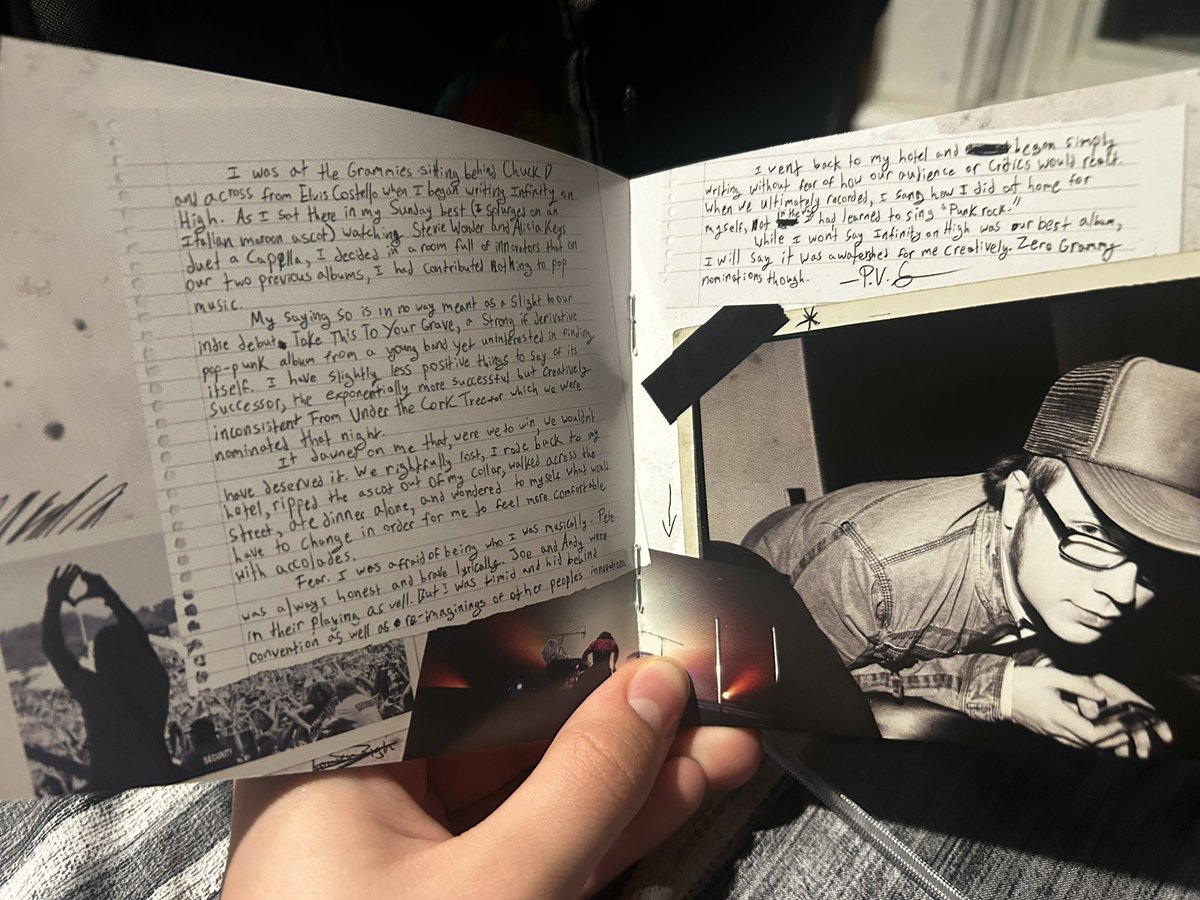 I was at the Grammies sitting behind Chuck D
and across from Elvis Costello when I began writing Infinity on
High. As I sat there in my Sunday best (I splurged on an
Italian maroon ascot) watching Stevie Wonder and Alicia Keys
duet a Cappella, I decided in a room full of innovators that on
our two previous albums, I had contributed Nothing to pop
music.
My saying so is in no way meant as a slight to our
indie debut, Take This To Your Grave, a strong if derivative
pop-punk album from a young band yet uninterested in finding
itself. I have slightly less positive things to say of its
successor, the exponentially more successful but creatively
inconsistent From Under the Cork Tree for which we were
nominated that night.
It dawned on me that, were we to win, we wouldn't
have deserved it. We rightfully lost, I rode back to my
hotel, ripped the ascot out of my collar, walked across the
street, ate dinner alone, and wondered to myself what would
have to change in order for me to feel more comfortable
with accolades.
Fear. I was afraid of being who I was musically. Pete
was always honest and brave lyrically. Joe and Andy were
in their playing as well. But I was timid and hid behind
convention as well as re-imaginings of other peoples innovations
SECURITY
I went back to my hotel and began simply
writing without fear of how our audience or Critics would react.
When we ultimately recorded, I sang how I did at home for
myself, Not in the way I had learned to sing "Punk rock."
While I won't say Infinity on High was our best album,
I will say it was a watershed for me creatively. Zero Grammy
nominations though. —P.V.S